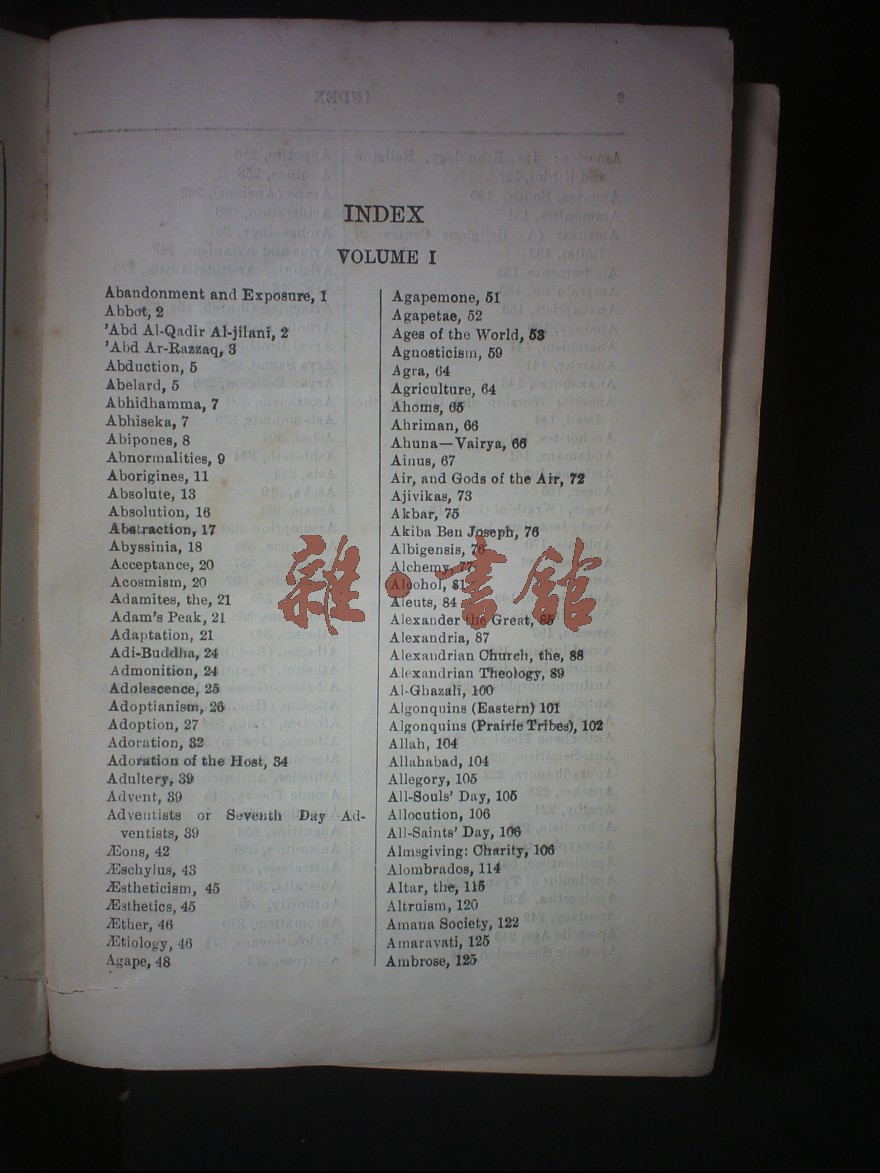 INDEX
VOLUME I
Abandonment and Exposure, 1
Abbot, 2
'Abd Al-Qadir Al-jilani, 2
'Abd Ar-Razzaq, 3
Abduction, 5
Abelard, 5
Abhidhamma, 7
Abhiseka, 7
Abipones, 8
Abnormalities, 9
Aborigines, 11
Absolute, 13
Absolution, 16
Abstraction, 17
Abyssinia, 18
Acceptance, 20
Acosmism, 20
Adamites, the, 21
Adam's Peak, 21
Adaptation, 21
Adi-Buddha, 24
Admonition, 24
Adolescence, 25
Adoptianism, 26
Adoption, 27
Adoration, 32
Adoration of the Host, 34
Adultery, 39
Advent, 39
Adventists or Seventh Day Ad-
ventists, 39
Æons, 42
Æschylus, 43
Æstheticism, 45
Æsthetics, 45
Æther, 46
Ætiology, 46
Agape, 48
Agapemone, 51
Agapetae, 52
Ages of the World, 53
Agnosticism, 59
Agra, 64
Agriculture, 64
Ahoms, 65
Ahriman, 66
Ahuna—Vairya, 66
Ainus, 67
Air, and Gods of the Air, 72
Ajivikas, 73
Akbar, 75
Akiba Ben Joseph, 76
Albigensis, 76
Alchemy, 77
Alcohol, 81
Aleuts, 84
Alexander the Great, 85
Alexandria, 87
Alexandrian Church, the, 88
Alexandrian Theology, 89
Al-Ghazali, 100
Algonquins (Eastern) 101
Algonquins (Prairie Tribes), 102
Allah, 104
Allahabad, 104
Allegory, 105
All-Souls' Day, 105
Allocution, 106
All-Saints' Day, 106
Almsgiving: Charity, 106
Alombrados, 114
Altar, the, 115
Altruism, 120
Amana Society, 122
Amaravati, 125
Ambrose, 125
雜·書館